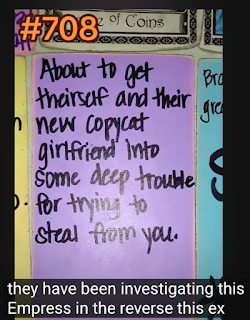 #708
e of Coins
About to get
theirself and their
new copycat
girlfriend into
some deep trouble
for trying to
steal from you.
Bro
gre
they have been investigating this
Empress in the reverse this ex